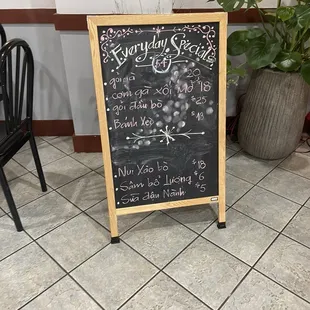 Everyday Specials
gỏi gà 29
cơm gà xôi Mỡ $18
gỏi đầu bò $25
Bánh Xèo $18
Nui Xào bò $18
Sâm bổ Lượng $6
Sữa đậu Nành $5